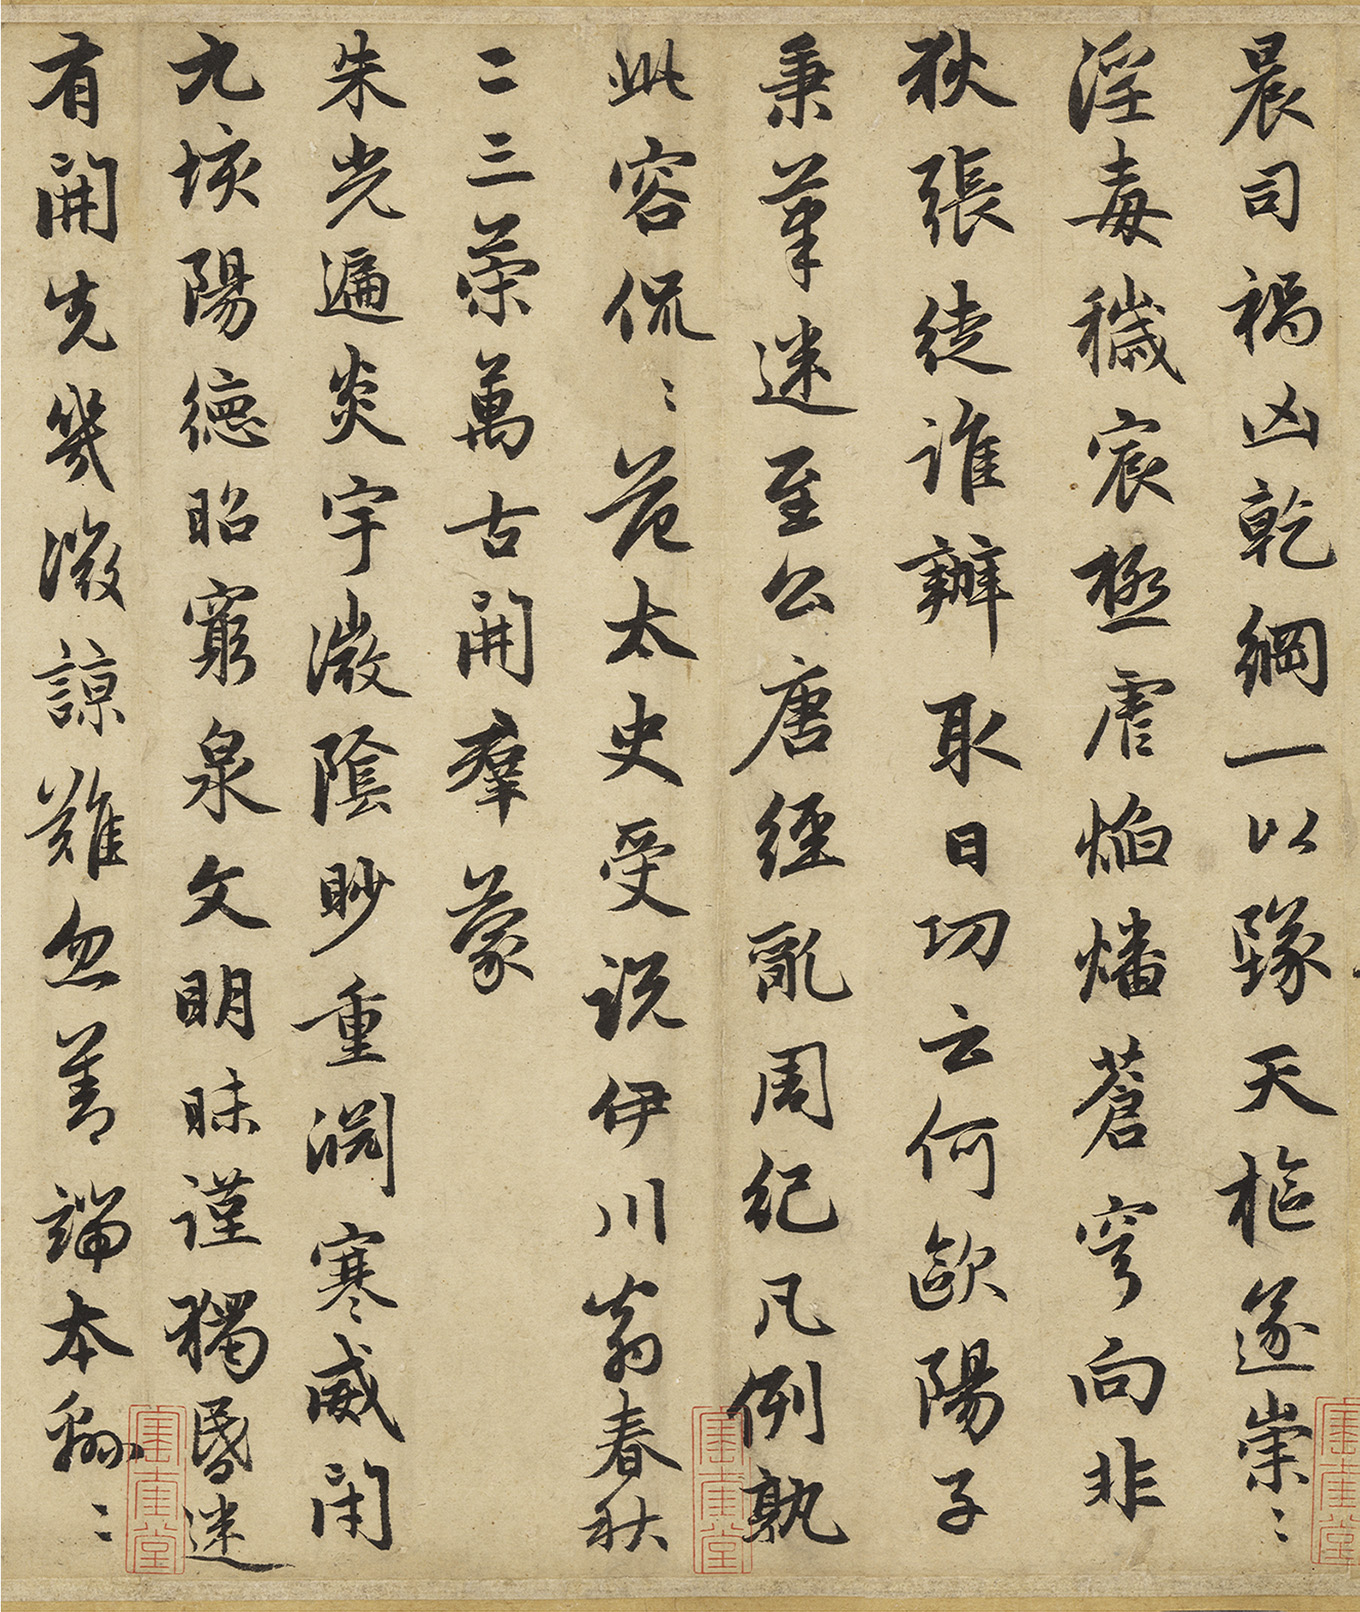 晨司禍凶乾綱一以隊天樞遂崇〻
淫毒穢宸極虐焰燔蒼穹向非
狄張徒誰辦取日功云何歐陽子
秉筆迷至公唐經亂周紀凡例孰
此容侃〻范太史受說伊川翁春秋
二三策萬古開群蒙
朱光遍炎宇微陰眇重淵寒威閉
九垓陽德昭窮泉文明昧謹獨昏迷
有開先幾微諒難忽善端本綿〻